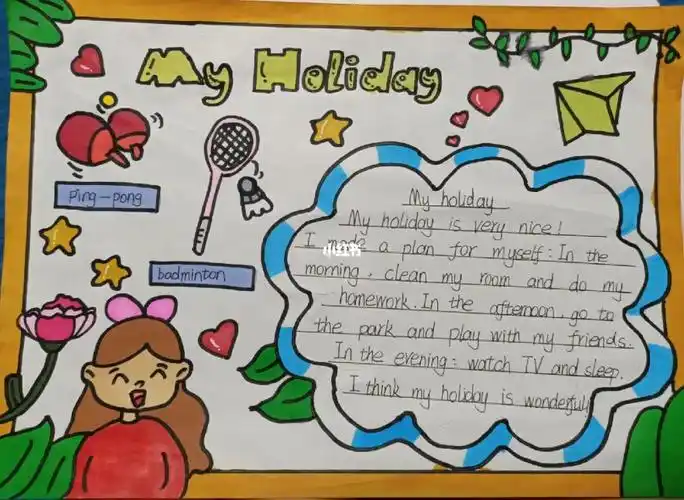 My Holiday
ping-pong
badminton
My holiday
My holiday is very nice!
I made a plan for myself: In the
morning, clean my room and do my
homework. In the afternoon, go to
the park and play with my friends.
In the evening: watch TV and sleep.
I think my holiday is wonderful!
小红书